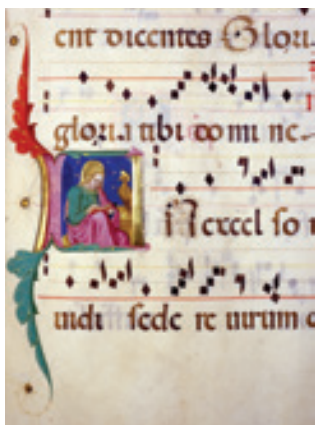 ent dicentes Glori
gloria tibi domine
N excel so
uidi sede re uirum